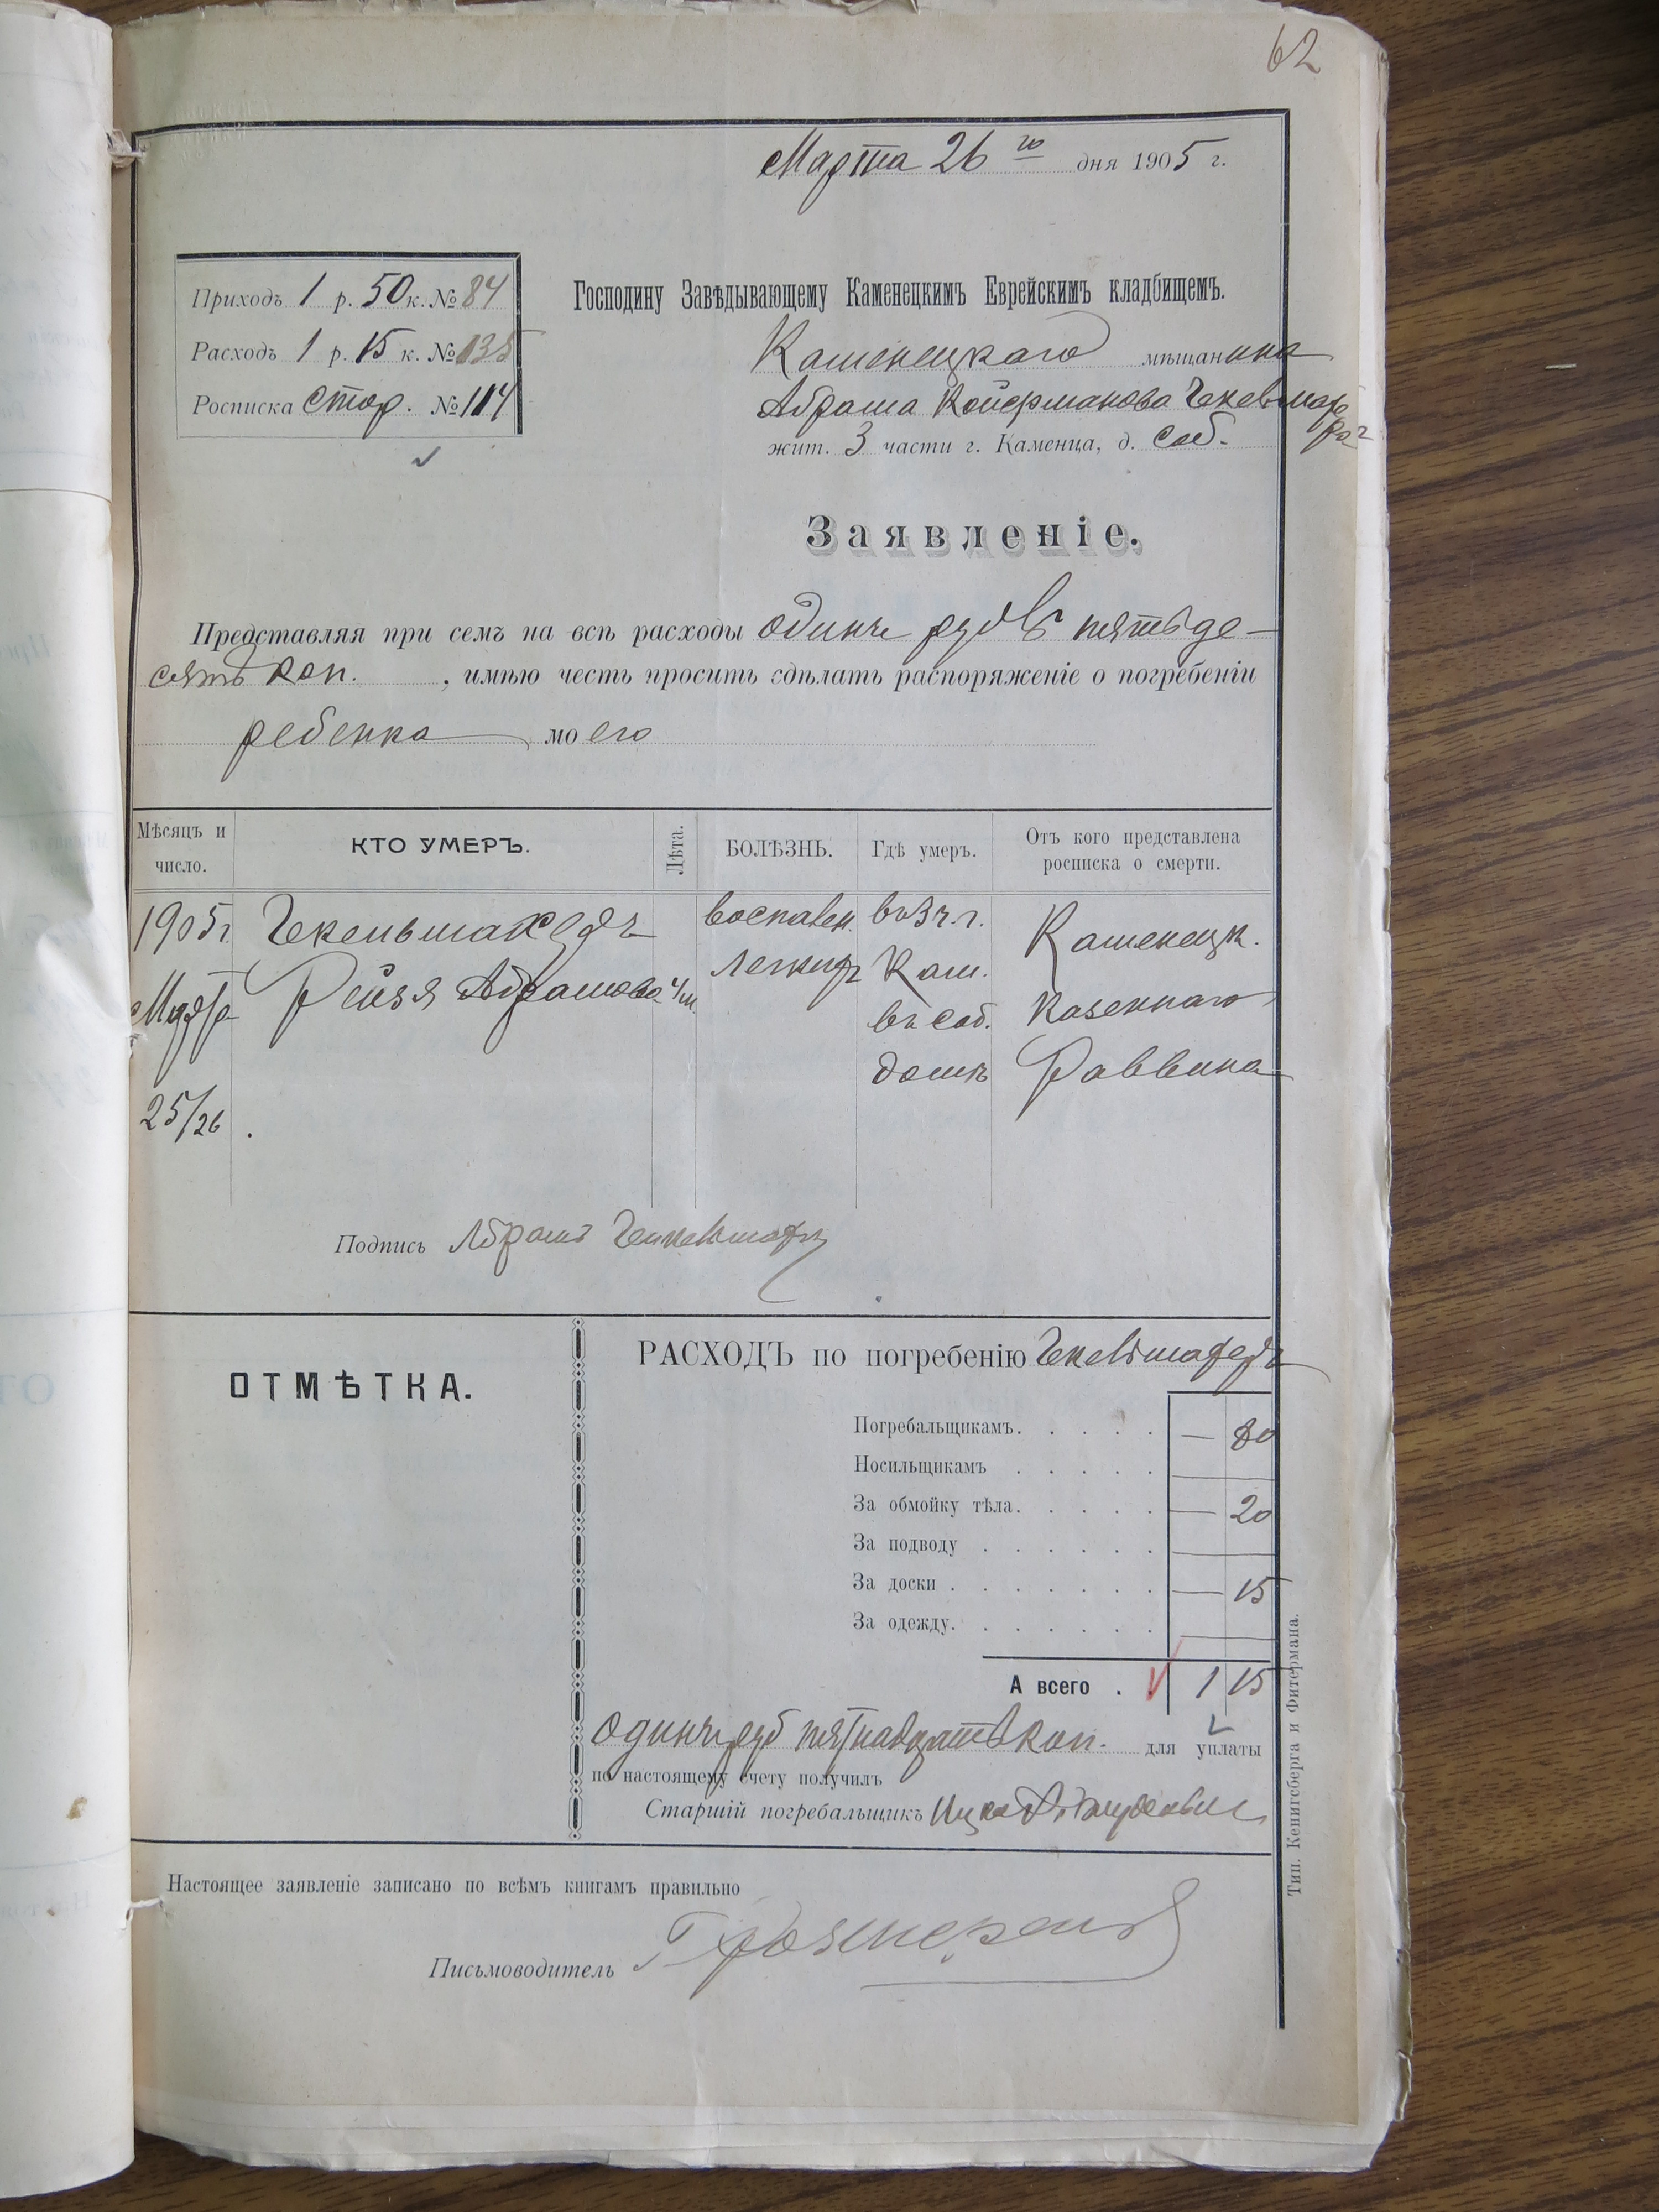 62
Марта 26 го дня 1905 г.
Приходъ 1 р. 50 к. № 84
Расходъ 1 р. 15 к. № 135
Росписка стор. № 114
Господину Завѣдывающему Каменецкимъ Еврейскимъ кладбищемъ.
Каменецкаго мѣщанина
Абрама
жит. 3 части г. Каменца, д. соб.
Заявленіе.
Представляя при семъ на всѣ расходы одинъ рубль пятьде-
сятъ коп. , имѣю честь просить сдѣлать распоряженіе о погребеніи
ребенка моего
Мѣсяцъ и число.
КТО УМЕРЪ.
Лѣта.
БОЛѢЗНЬ.
Гдѣ умеръ.
Отъ кого представлена росписка о смерти.
1905 г. воспален. въ 3 ч. г. Каменецк.
Рейзя Абрамова 4 м. легкихъ Кам. Казеннаго
въ соб.
домѣ Раввина
25/26
Подпись Абрамъ
ОТМѢТКА.
РАСХОДЪ по погребенію
Погребальщикамъ. — 80
Носильщикамъ
За обмойку тѣла. — 20
За подводу
За доски — 15
За одежду.
А всего 1 15
одинъ руб пятнадцать коп. для уплаты
по настоящему счету получилъ
Старшій погребальщикъ Ицко
Настоящее заявленіе записано по всѣмъ книгамъ правильно
Письмоводитель
Тип. Кенигсберга и Фитермана.